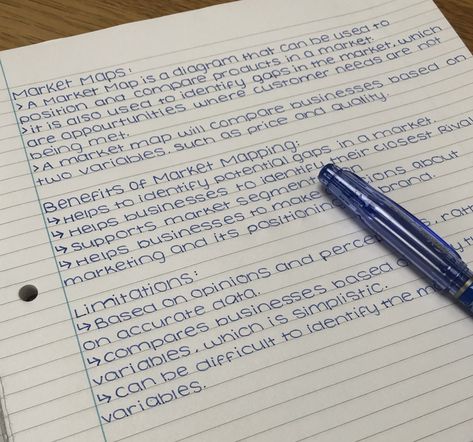 Market Maps:
> A Market Map is a diagram that can be used to
position and compare products in a market.
> it is also used to identify gaps in the market, which
are oppourtunities where customer needs are not
being met.
> A market map will compare businesses based on
two variables, such as price and quality.
Benefits of Market Mapping:
↳ Helps to identify potential gaps in a market.
↳ Helps businesses to identify their closest Rival
↳ Supports market segment
↳ Helps businesses to make about
marketing and its positioning brand.
Limitations:
↳ Based on opinions and
on accurate data.
↳ compares businesses based
variables, which is simplistic.
↳ can be difficult to identify the
variables.